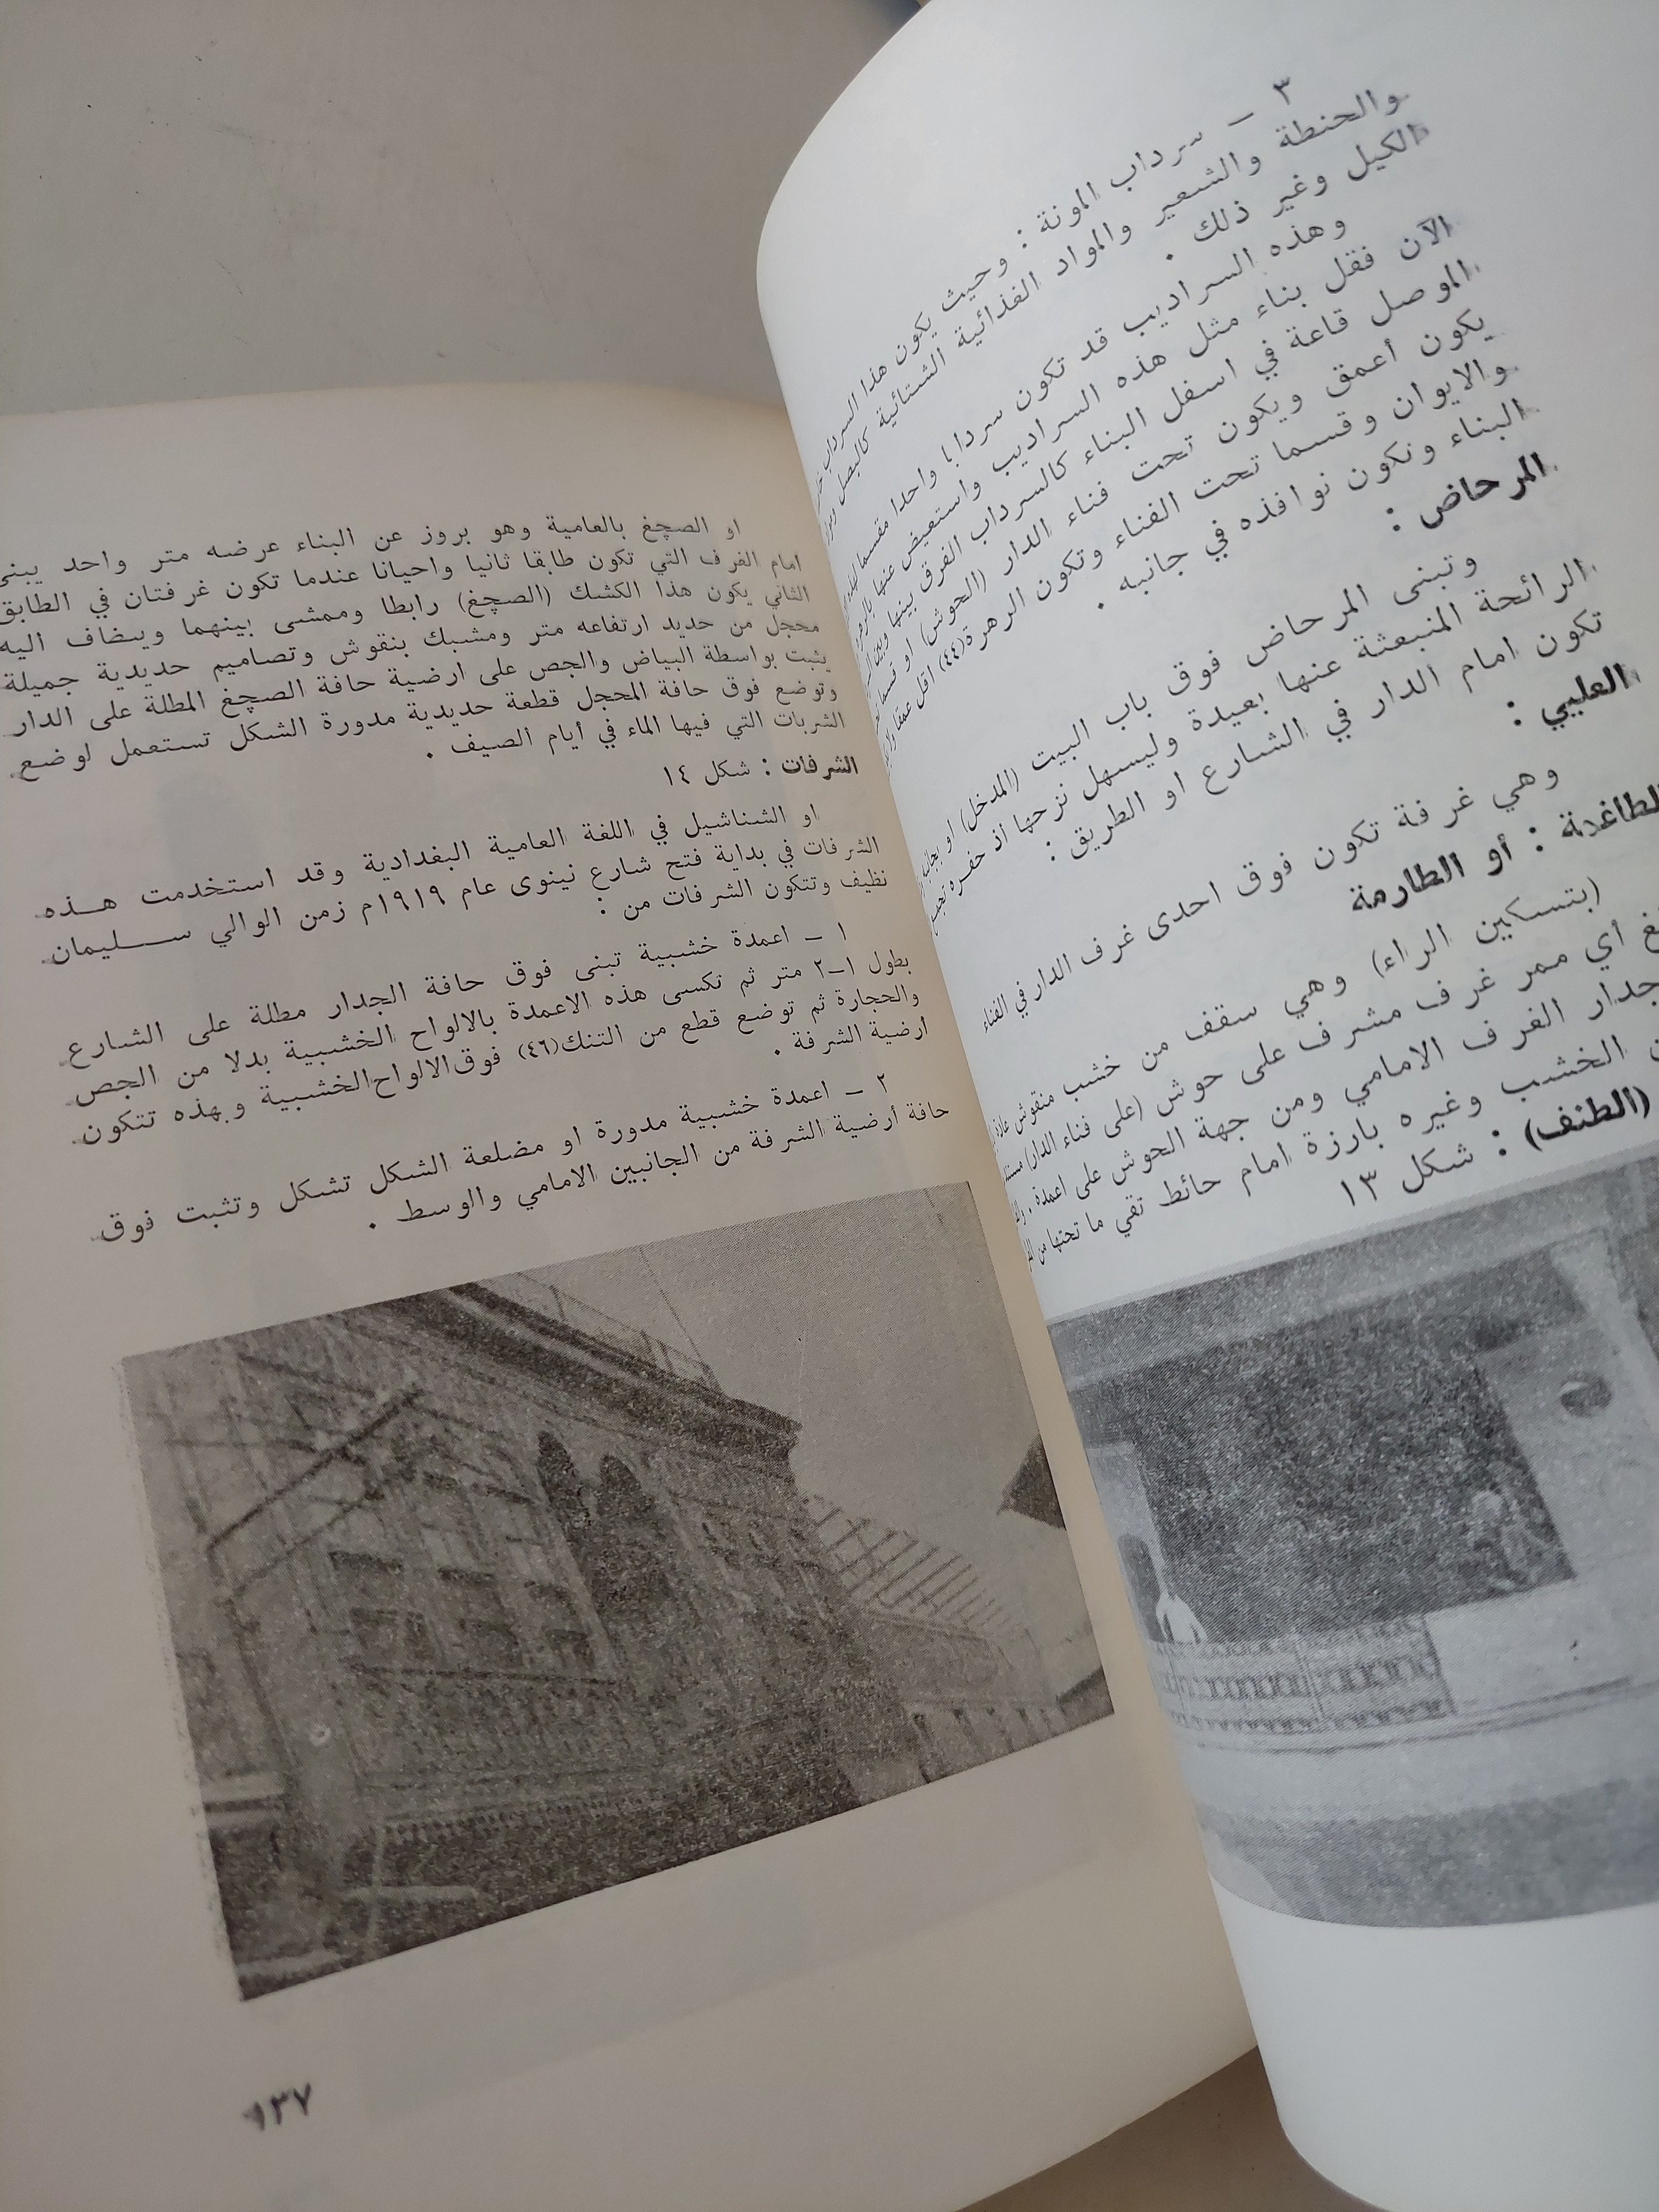 ٣ ــ سرداب المونة : وحيث يكون هذا السرداب
والحنطة والشعير والمواد الغذائية الشتائية كالبصل
الكيل وغير ذلك .
وهذه السراديب قد تكون سردابا واحدا مقسما
الآن فقل بناء مثل هذه السراديب واستعيض عنها
الموصل قاعة في اسفل البناء كالسرداب الفرق بينها وبين
يكون أعمق ويكون تحت فناء الدار (الحوش) او قسما
والايوان وقسما تحت الفناء وتكون الرهرة(٤٤) اقل عمقا
البناء وتكون نوافذه في جانبه .
المرحاض :
وتبنى المرحاض فوق باب البيت (المدخل) او
الرائحة المنبعثة عنها بعيدة وليسهل نزحها اذ حفره
تكون امام الدار في الشارع او الطريق :
العليبي :
وهي غرفة تكون فوق احدى غرف الدار في الفناء
الطاغدة : أو الطارمة
(بتسكين الراء) وهي سقف من خشب منقوش
أي ممر غرف مشرف على حوش (على فناء الدار)
جدار الغرف الامامي ومن جهة الحوش على اعمدة .
الخشب وغيره بارزة امام حائط تقي ما تحتها من
(الطنف) : شكل ١٣
او الصچغ بالعامية وهو بروز عن البناء عرضه متر واحد يبنى
امام الغرف التي تكون طابقا ثانيا واحيانا عندما تكون غرفتان في الطابق
الثاني يكون هذا الكشك (الصچغ) رابطا وممشى بينهما ويضاف اليه
محجل من حديد ارتفاعه متر ومشبك بنقوش وتصاميم حديدية جميلة
يثبت بواسطة البياض والجص على ارضية حافة الصچغ المطلة على الدار
وتوضع فوق حافة المحجل قطعة حديدية مدورة الشكل تستعمل لوضع
الشربات التي فيها الماء في أيام الصيف .
الشرفات : شكل ١٤
او الشناشيل في اللغة العامية البغدادية وقد استخدمت هـــذه
الشرفات في بداية فتح شارع نينوى عام ١٩١٩م زمن الوالي ســـليمان
نظيف وتتكون الشرفات من :
١ ــ اعمدة خشبية تبنى فوق حافة الجدار مطلة على الشارع
بطول ١ــ٢ متر ثم تكسى هذه الاعمدة بالالواح الخشبية بدلا من الجص
والحجارة ثم توضع قطع من التنك(٤٦) فوق الالواح الخشبية وبهذه تتكون
ارضية الشرفة .
٢ ــ اعمدة خشبية مدورة او مضلعة الشكل تشكل وتثبت فوق
حافة أرضية الشرفة من الجانبين الامامي والوسط .
١٣٧